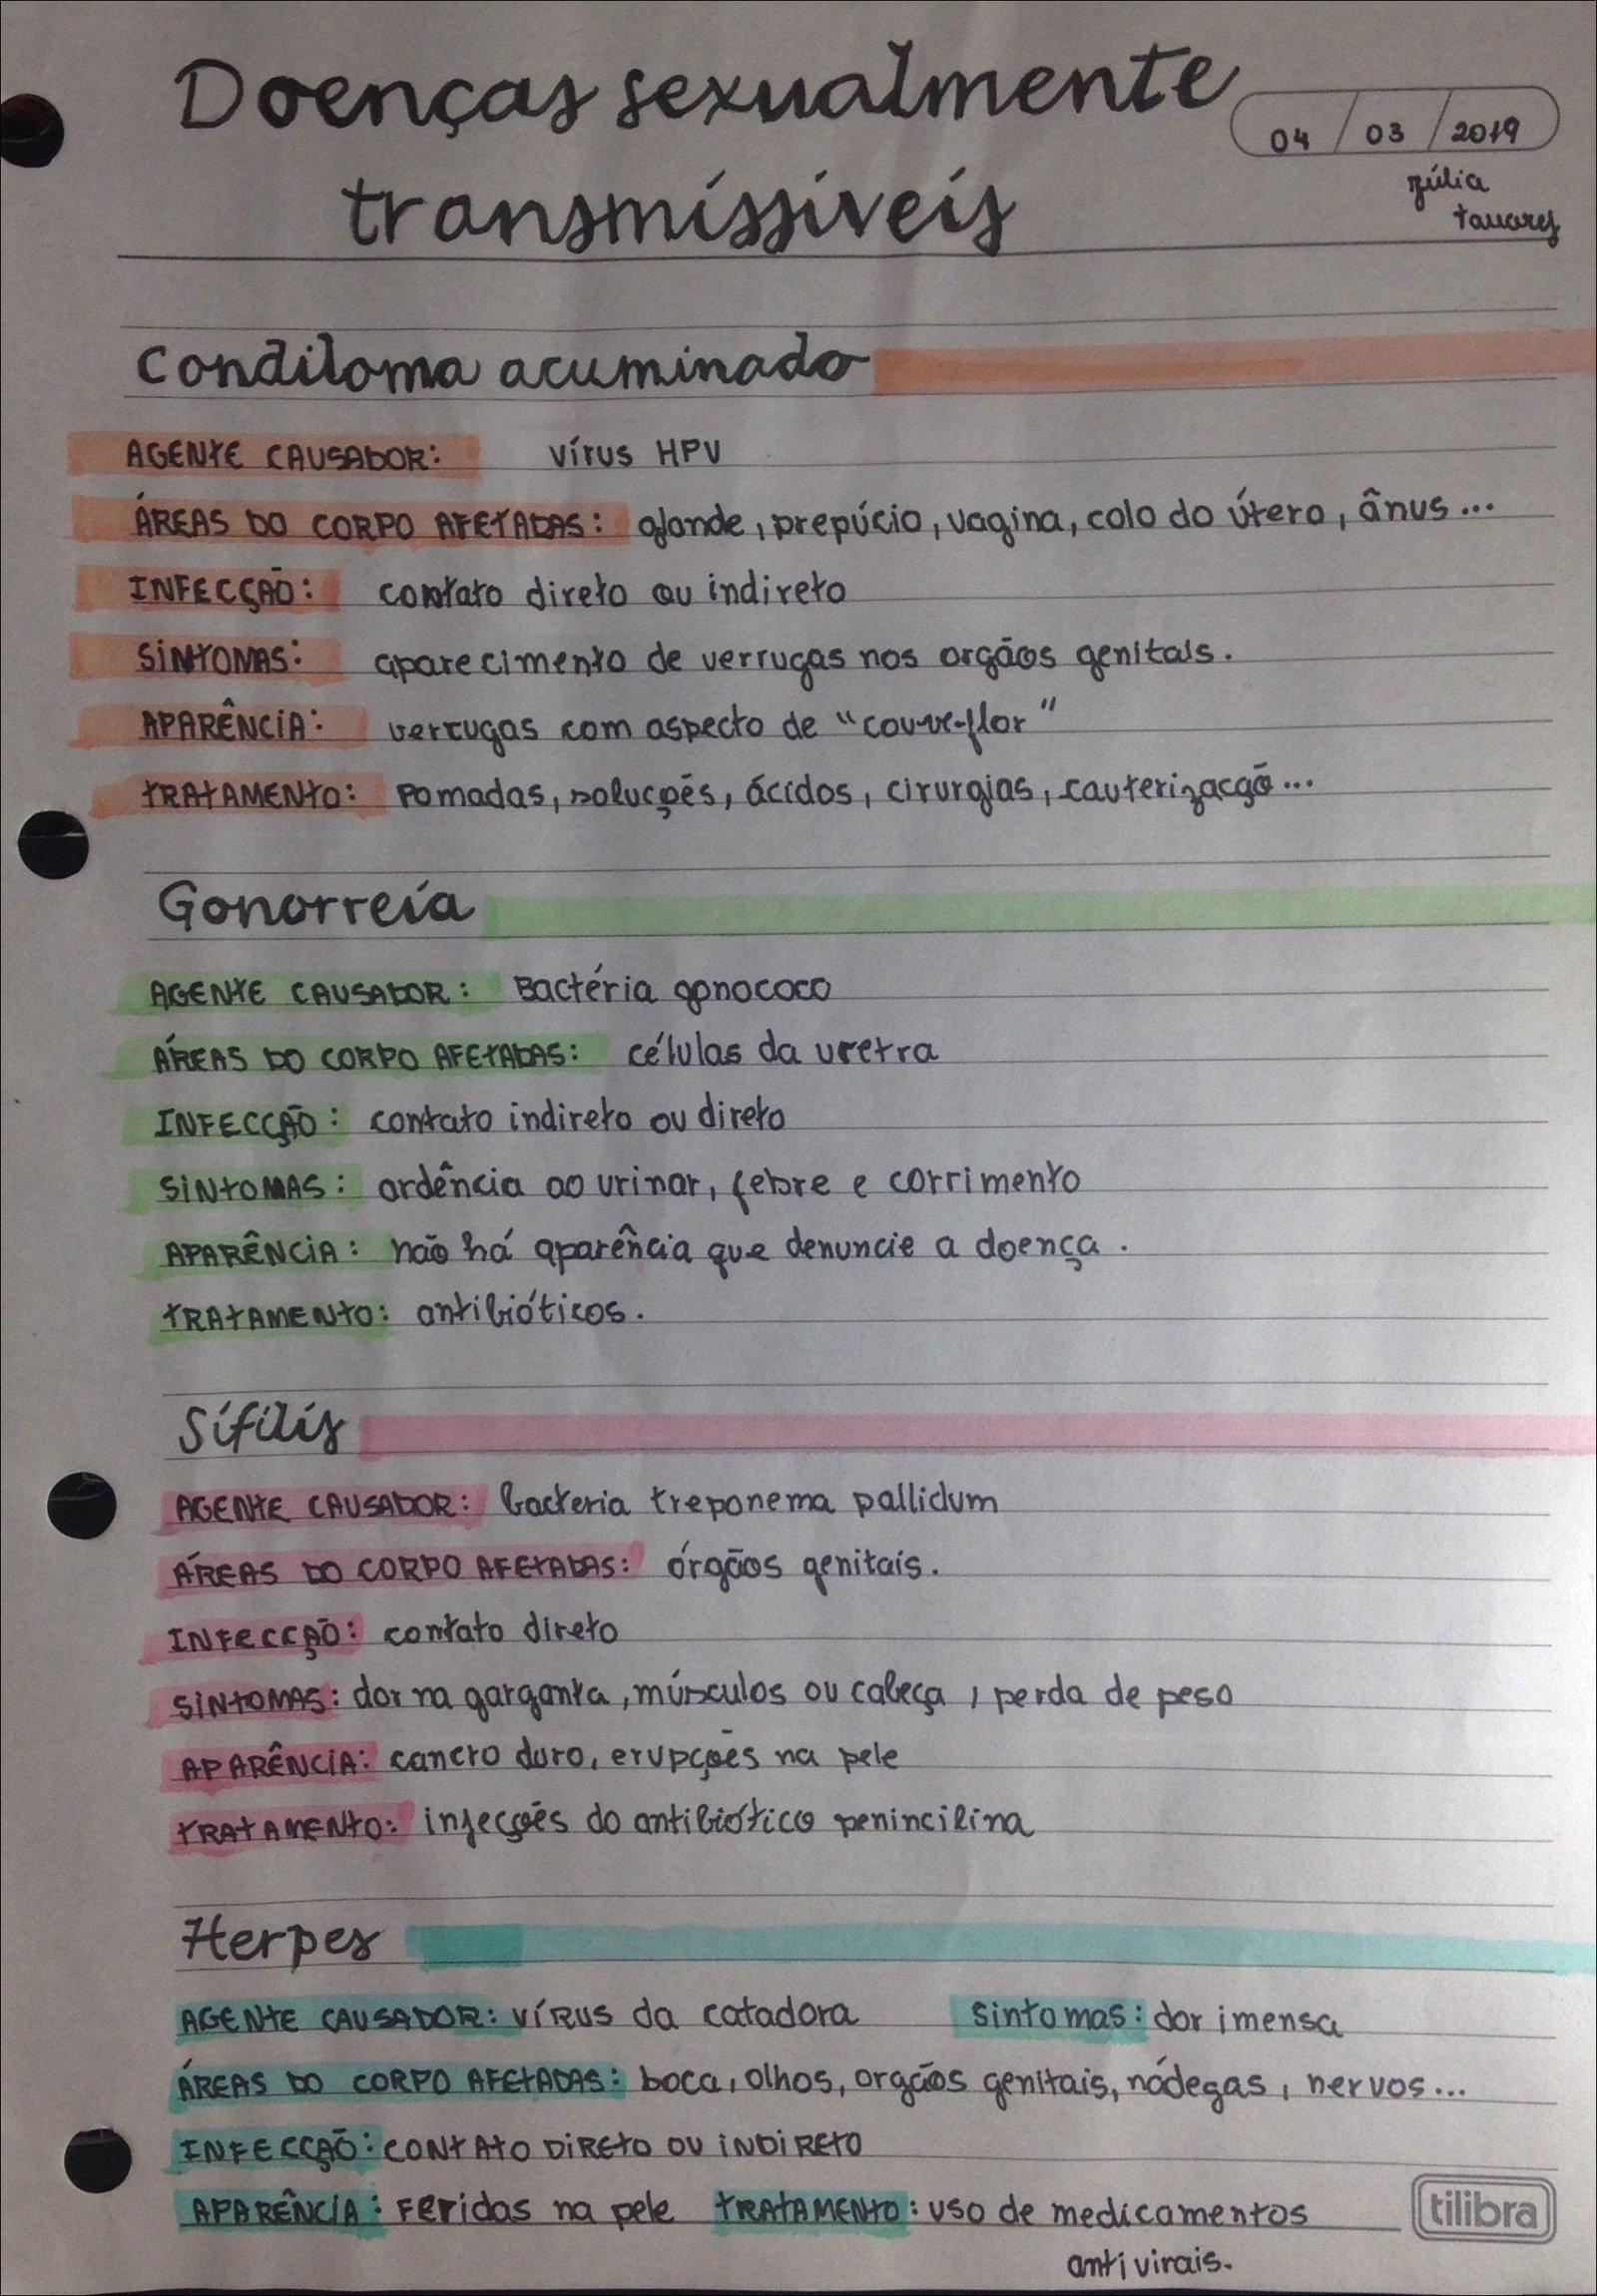 Doenças sexualmente
transmissíveis
04 / 03 / 2019
júlia
tavares
Condiloma acuminado
AGENTE CAUSADOR: vírus HPV
ÁREAS DO CORPO AFETADAS: glande, prepúcio, vagina, colo do útero, ânus...
INFECÇÃO: contato direto ou indireto
SINTOMAS: aparecimento de verrugas nos orgãos genitais.
APARÊNCIA: verrugas com aspecto de "couve-flor"
TRATAMENTO: Pomadas, soluções, ácidos, cirurgias, cauterizacção...
Gonorreia
AGENTE CAUSADOR: Bactéria gonococo
ÁREAS DO CORPO AFETADAS: células da uretra
INFECÇÃO: contato indireto ou direto
SINTOMAS: ardência ao urinar, febre e corrimento
APARÊNCIA: não há aparência que denuncie a doença.
TRATAMENTO: antibióticos.
Sífilis
AGENTE CAUSADOR: bacteria treponema pallidum
ÁREAS DO CORPO AFETADAS: órgãos genitais.
INFECÇÃO: contato direto
SINTOMAS: dor na garganta, músculos ou cabeça, perda de peso
APARÊNCIA: cancro duro, erupções na pele
TRATAMENTO: injeções do antibiótico penincilina
Herpes
AGENTE CAUSADOR: vírus da catadora Sintomas: dor imensa
ÁREAS DO CORPO AFETADAS: boca, olhos, orgãos genitais, nádegas, nervos...
INFECÇÃO: CONTATO DIRETO OU INDIRETO
APARÊNCIA: Feridas na pele TRATAMENTO: uso de medicamentos
antivirais.
tilibra